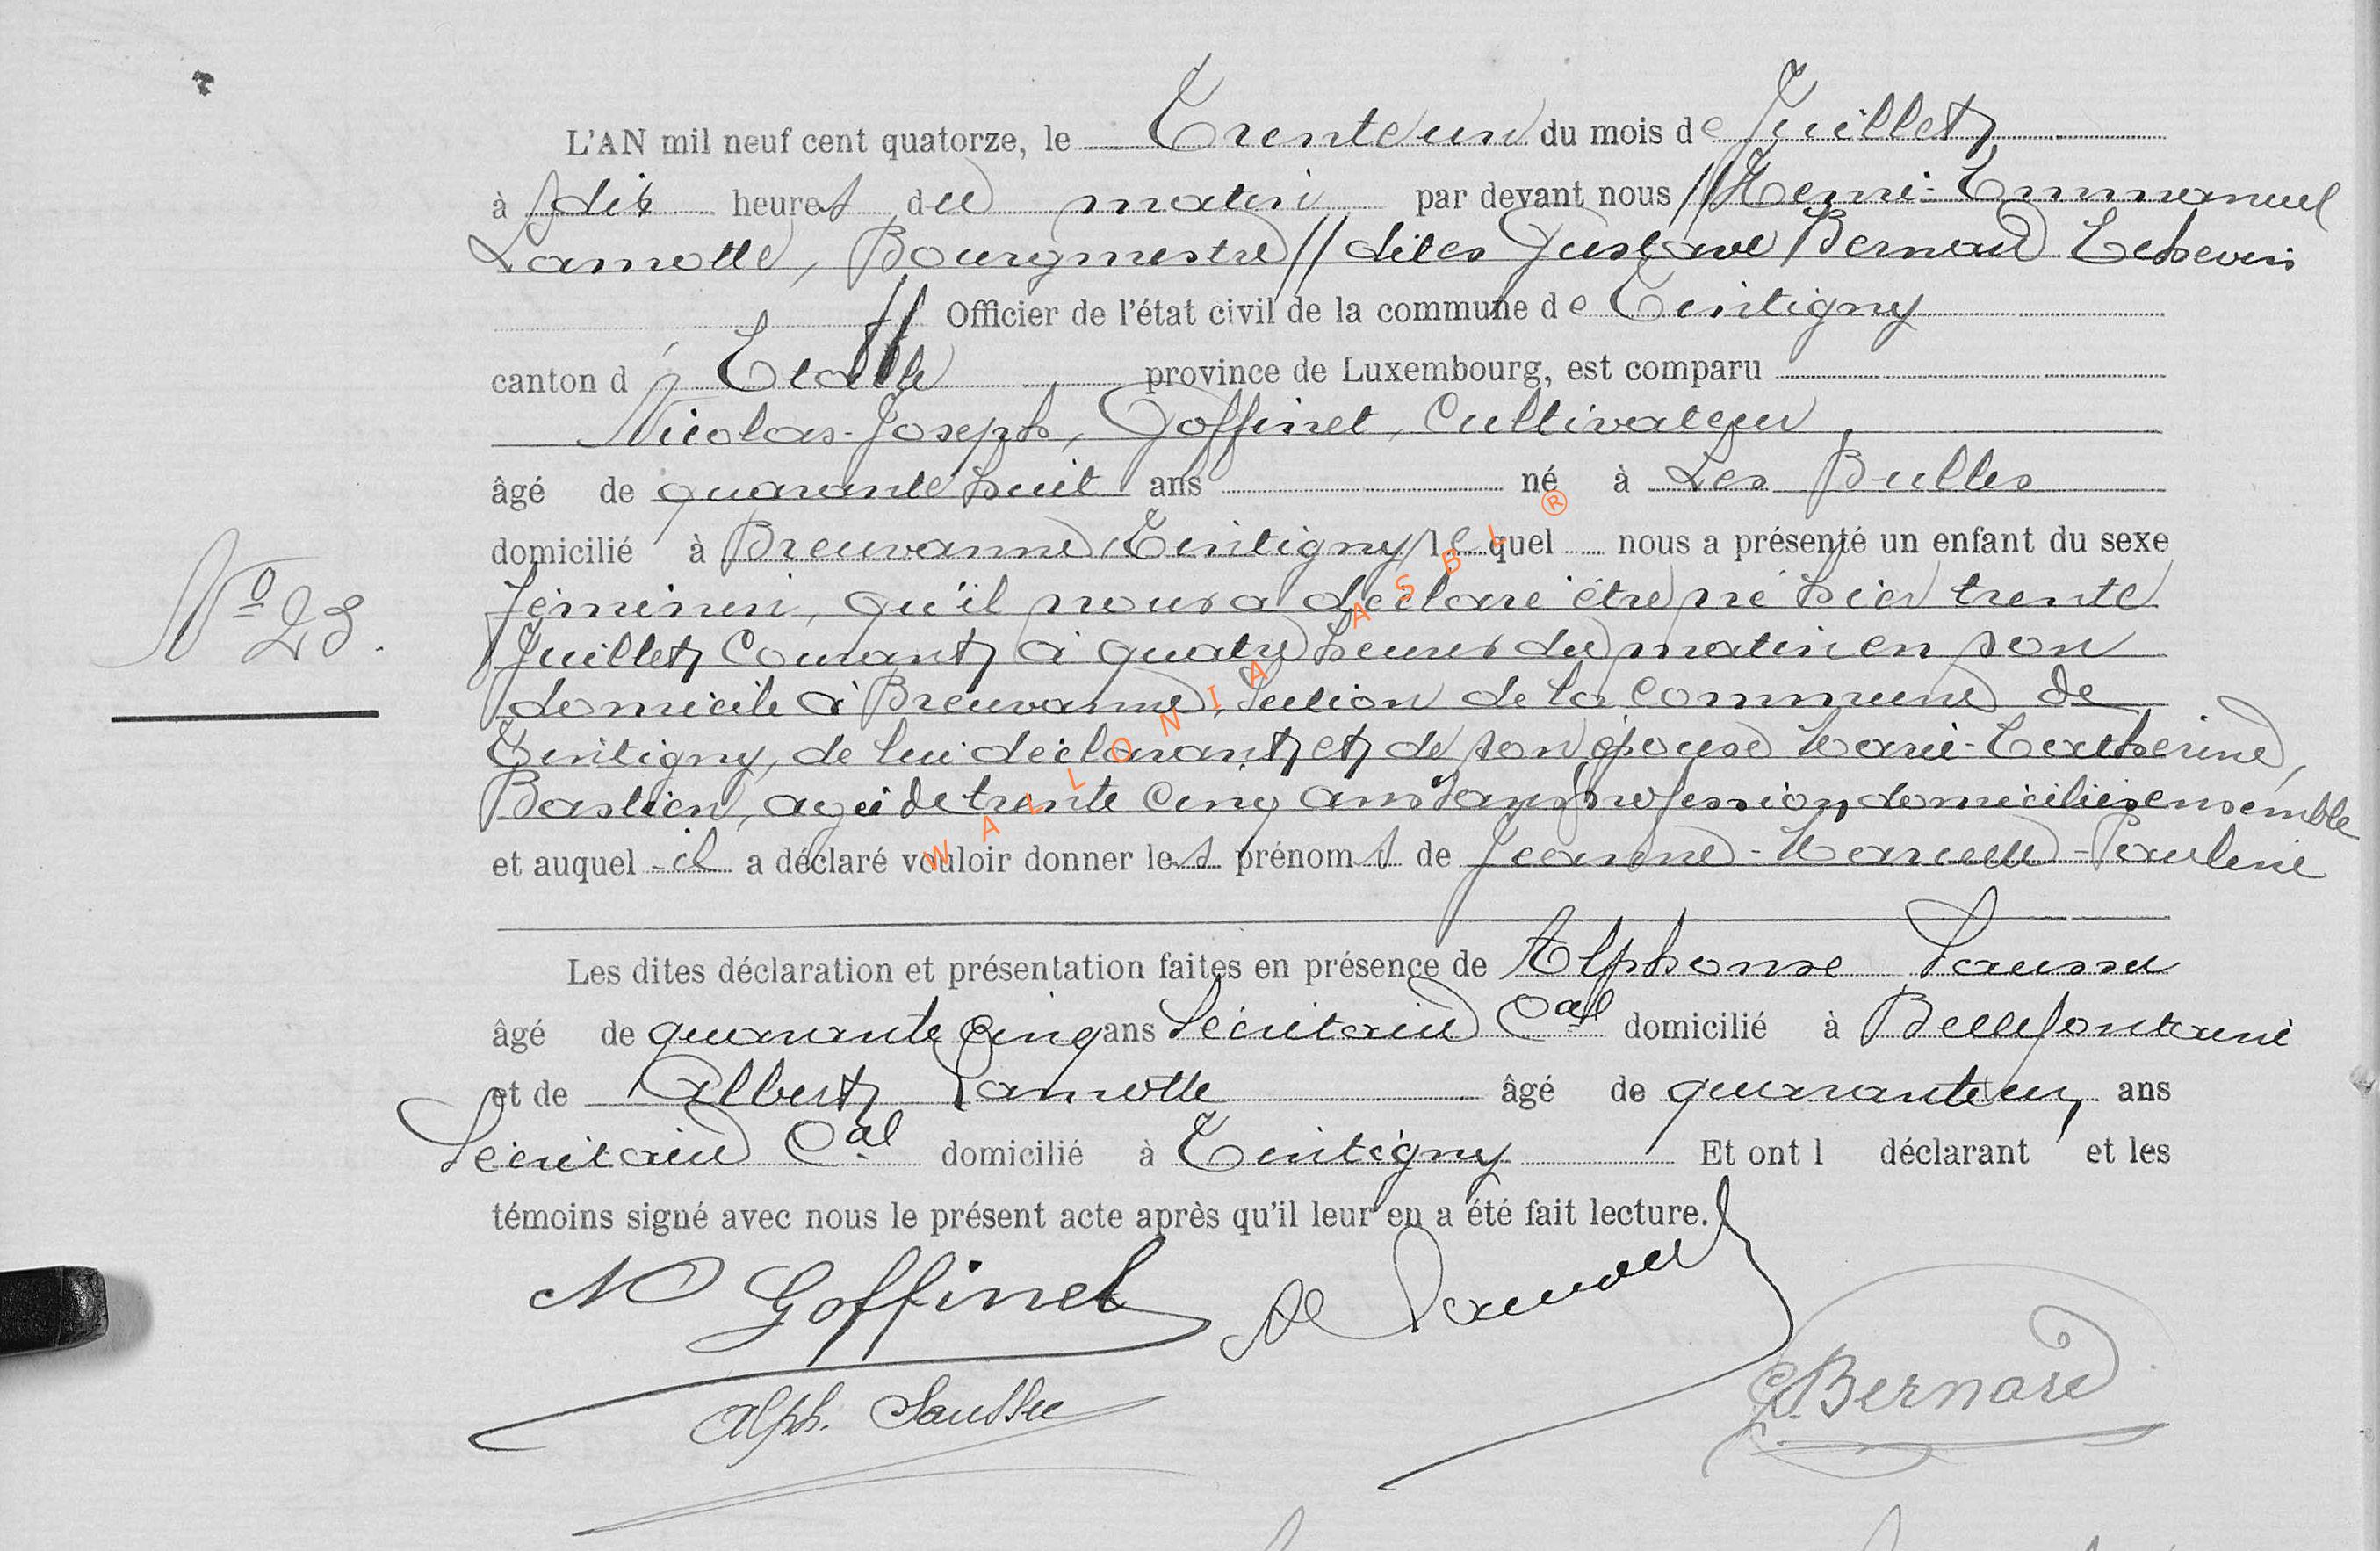 L'AN mil neuf cent quatorze, le Trente un du mois de Juillet
à dix heures du matin par devant nous // Henri-Emmanuel
Lamotte, Bourgmestre // dites Gustave Bernard Echevin
Officier de l'état civil de la commune de Tintigny
canton d' Etalle province de Luxembourg, est comparu
Nicolas-Joseph, Goffinet, Cultivateur,
âgé de quarante huit ans né à Les Bulles
domicilié à Breuvanne, Tintigny, lequel nous a présenté un enfant du sexe
N° 23.
féminin, qu'il nous a déclaré être né hier trente
Juillet Courant à quatre heures du matin en son
domicile à Breuvanne, Section de la Commune de
Tintigny, de lui déclarant et de son épouse Marie-Catherine,
Bastien, agée de trente cinq ans sans profession domiciliés ensemble
et auquel il a déclaré vouloir donner les prénoms de Jeanne-Marcelle-Pauline
Les dites déclaration et présentation faites en présence de Alphonse Saussu
âgé de quarante cinq ans Secrétaire Cal domicilié à Bellefontaine
et de Albert Lamotte âgé de quarante un ans
Secrétaire Cal domicilié à Tintigny Et ont l déclarant et les
témoins signé avec nous le présent acte après qu'il leur en a été fait lecture.
N Goffinet
Alph. Saussu
G. Bernard
WALLONIA ASBL ®